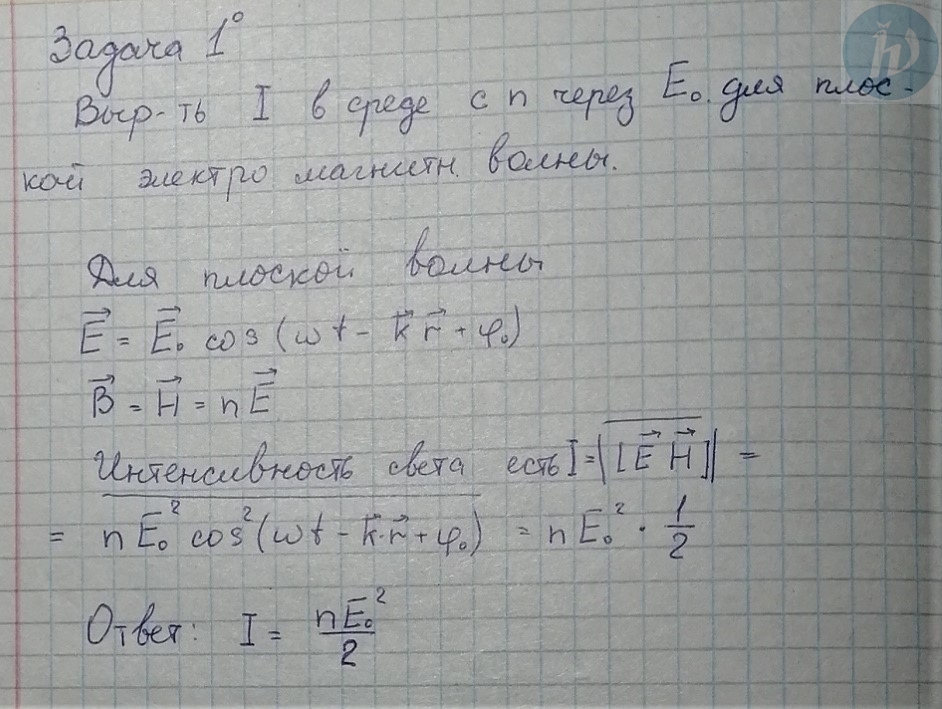 Задача 1°
Выр-ть I в среде с n через E₀ для плос-
кой электро магнитн. волны.
Для плоской волны
E⃗ = E⃗₀ cos (ωt - k⃗ r⃗ + φ₀)
B⃗ = H⃗ = nE⃗
Интенсивность света есть I = |[E⃗ H⃗]| =
= nE₀² cos² (ωt - k⃗·r⃗ + φ₀) = nE₀² · 1/2
Ответ: I = nE₀²/2